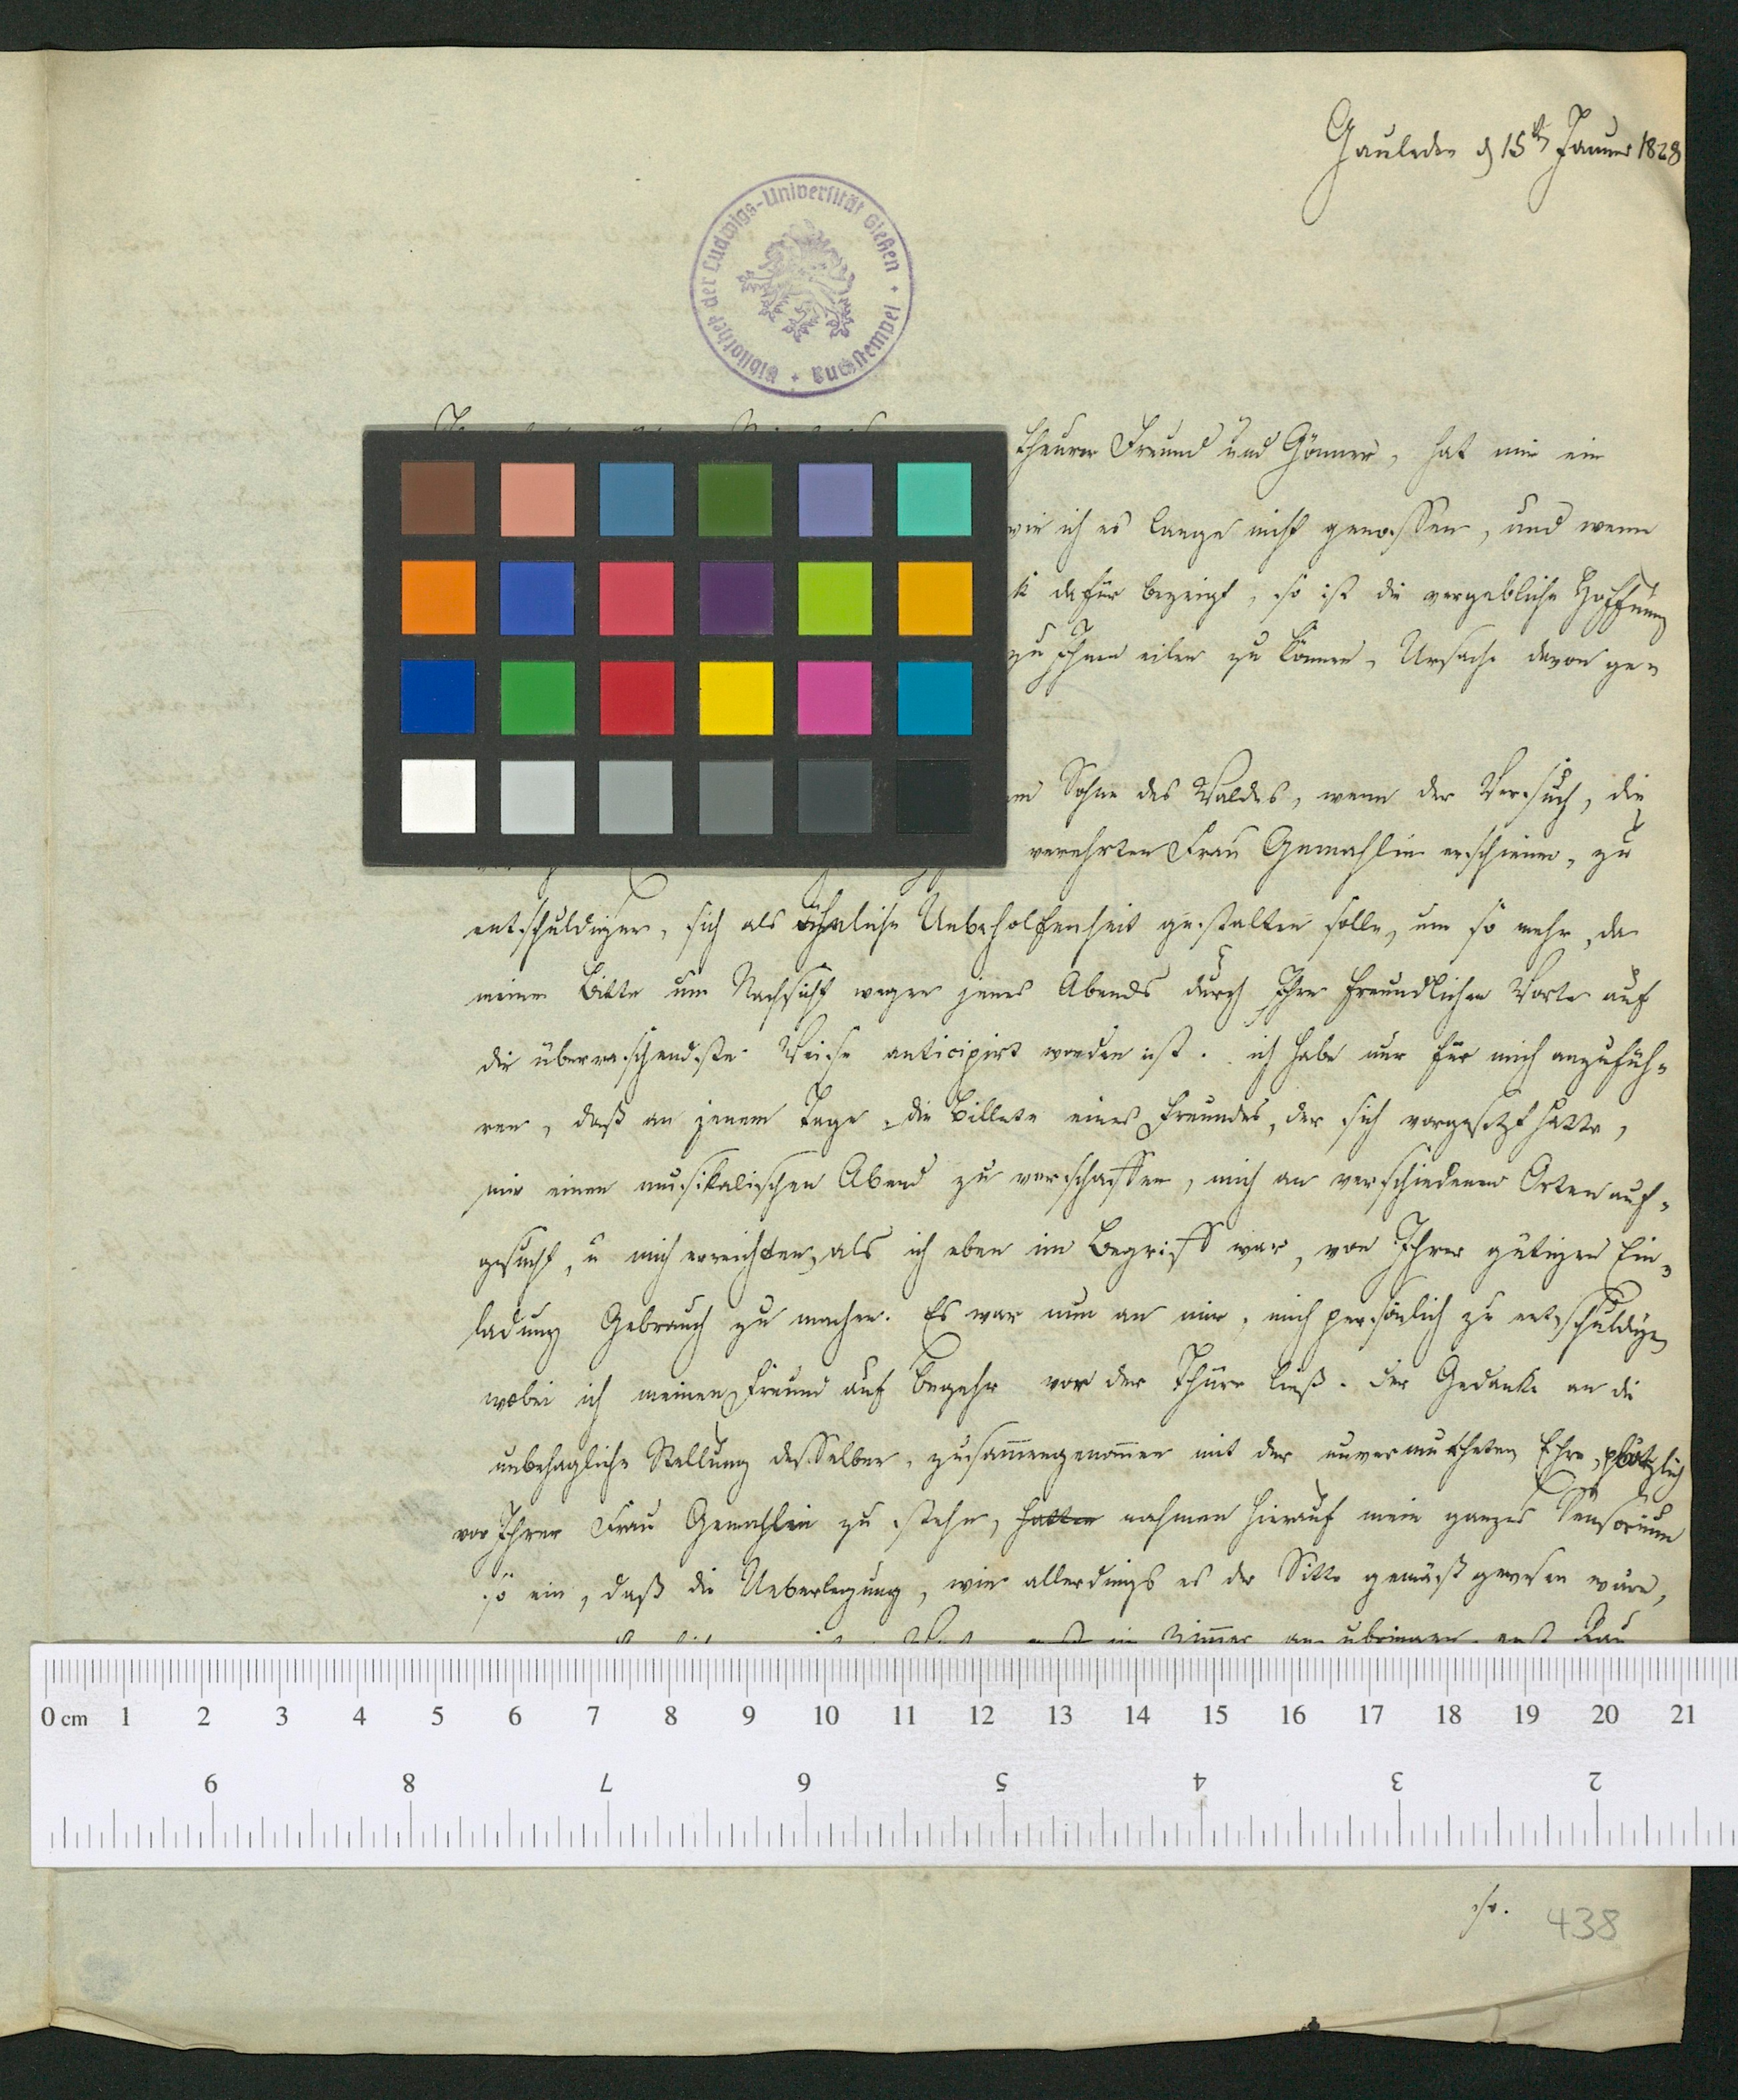 Gauleden d 15t Januar 1828
Bibliothek der Ludwigs-Universität Gießen + Buchstempel +
theurer Freund und Gönner, hat mir ein
wie ich es lange nicht genossen, und wenn
k dafür bezeigt, so ist die vergebliche Hoffnung
zu Ihnen eilen zu können, Ursache davon ge=
Sohne des Waldes, wenn der Versuch, die
verehrten Frau Gemahlin erschienen, zu
entschuldigen, sich als ähnliche Unbeholfenheit gestalten solle, um so mehr, da
meine Bitte um Nachsicht wegen jenes Abends durch Ihre freundlichen Worte auf
die überraschendste Weise anticipirt worden ist. ich habe nur für mich anzufüh=
ren, daß an jenem Tage die Billete eines Freundes, der sich vorgesetzt hatte,
mir einen musikalischen Abend zu verschaffen, mich an verschiedenen Orten auf=
gesucht, u mich erreichten, als ich eben im Begriff war, von Ihrer gütigen Ein=
ladung Gebrauch zu machen. Es war nun an mir, mich persönlich zu entschuldigen
wobei ich meinen Freund auf Begehr vor der Thüre ließ. Der Gedanke an die
unbehagliche Stellung desselben, zusammengenommen mit der unvermutheten Ehre, plötzlich
vor Ihrer Frau Gemahlin zu stehn, hatten nahmen hierauf mein ganzes Sensorium
so ein, daß die Ueberlegung, wie allerdings es der Sitte gemäß gewesen wäre,
0 cm 1 2 3 4 5 6 7 8 9 10 11 12 13 14 15 16 17 18 19 20 21
9 8 7 6 5 4 3 2
438